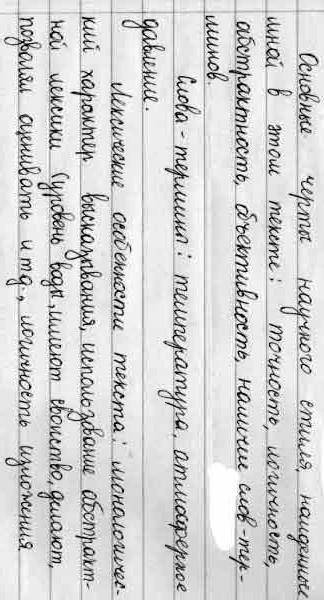 Основные черты научного стиля, найденные
мной в этом тексте: точность, логичность,
абстрактность, объективность, наличие слов-тер-
минов.
Слова-термины: температура, атмосферное
давление.
Лексические особенности текста: монологичес-
кий характер высказывания, использование абстракт-
ной лексики (уровень воды, имеют свойство, делают,
позволял оценивать и т.д., логичность изложения